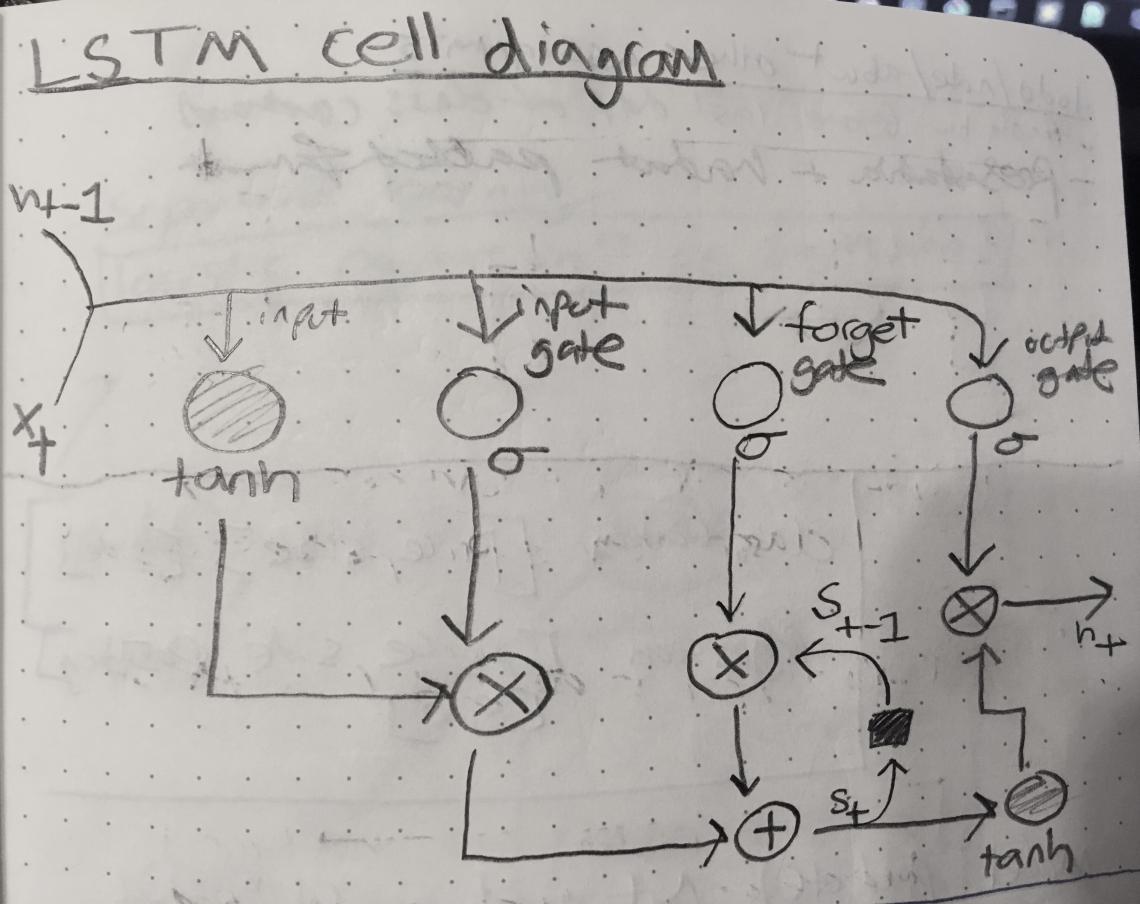 LSTM cell diagram
ht-1
input
input
gate
forget
gate
output
gate
xt
tanh
σ
σ
σ
St-1
ht
St
tanh